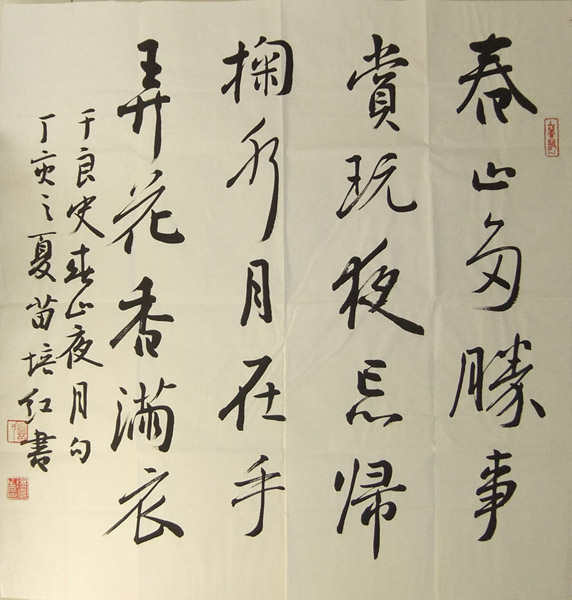 春山多勝事
賞玩夜忘帰
掬水月在手
弄花香滿衣
于良史春山夜月句
丁亥之夏苗培红書